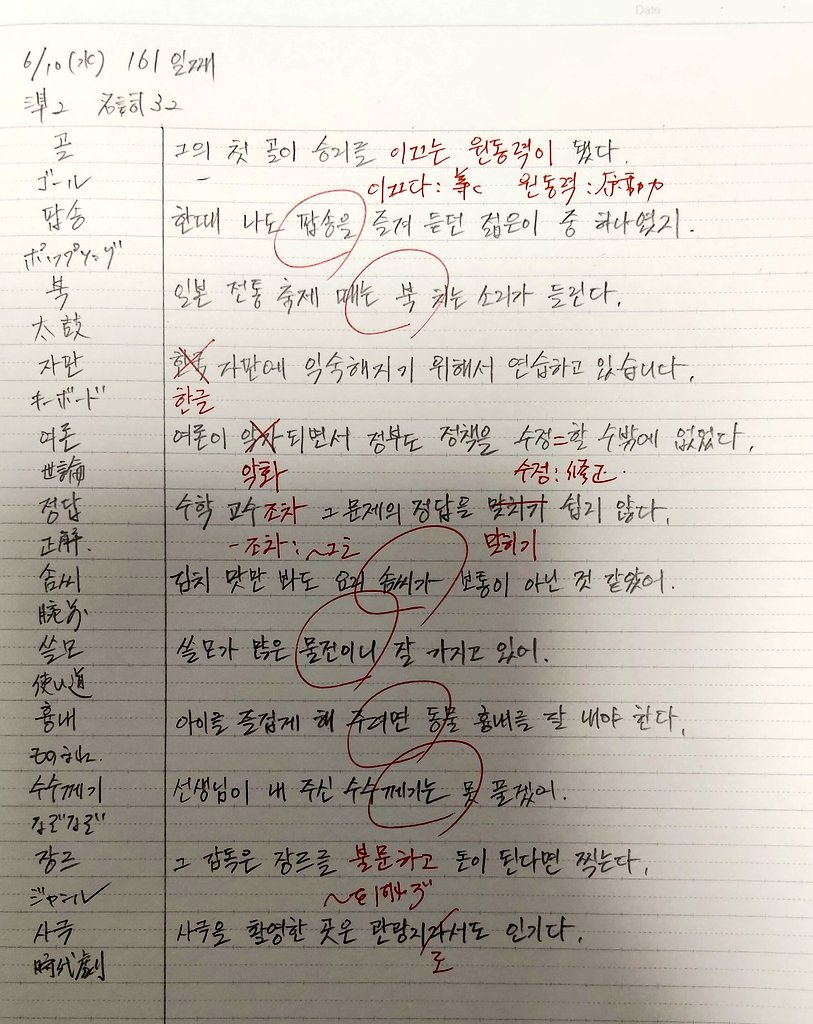 Date
6/10(水) 161 일째
準2 35
골 그의 첫 골이 승리를 이끄는 원동력이 됐다.
ゴール 이끄다: 導く 원동력: 原動力
팝송 한때 나도 팝송을 즐겨 듣던 젊은이 중 하나였지.
ポップソング
북 일본 전통 축제 때는 북 치는 소리가 들린다.
太鼓
자판 자판에 익숙해지기 위해서 연습하고 있습니다.
キーボード 한글
여론 여론이 되면서 정부도 정책을 수정할 수밖에 없었다.
世論 악화 수정: 修正
정답 수학 교수조차 그 문제의 정답을 맞히기 쉽지 않다.
正解. -조차: ~すら 맞히기
솜씨 김치 맛만 봐도 요리 솜씨가 보통이 아닌 것 같았어.
腕前
쓸모 쓸모가 많은 물건이니 잘 가지고 있어.
使い道
흉내 아이를 즐겁게 해 주려면 동물 흉내를 잘 내야 한다.
ものまね.
수수께기 선생님이 내 주신 수수께기는 못 풀겠어.
なぞなぞ
장르 그 감독은 장르를 불문하고 돈이 된다면 찍는다.
ジャンル ~を問わず
사극 사극을 촬영한 곳은 관광지라서도 인기다.
時代劇 로